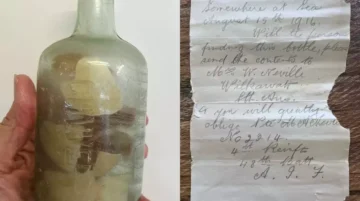 Somewhere at Sea
August 15th 1916
With the person
finding this bottle, please
send the contents to
W. Neville
Wilkawatt
Sth. Aus.
& you will greatly
oblige Pte M A Neville
No 2814
4th Reinf
48th Batt
A. I. F.